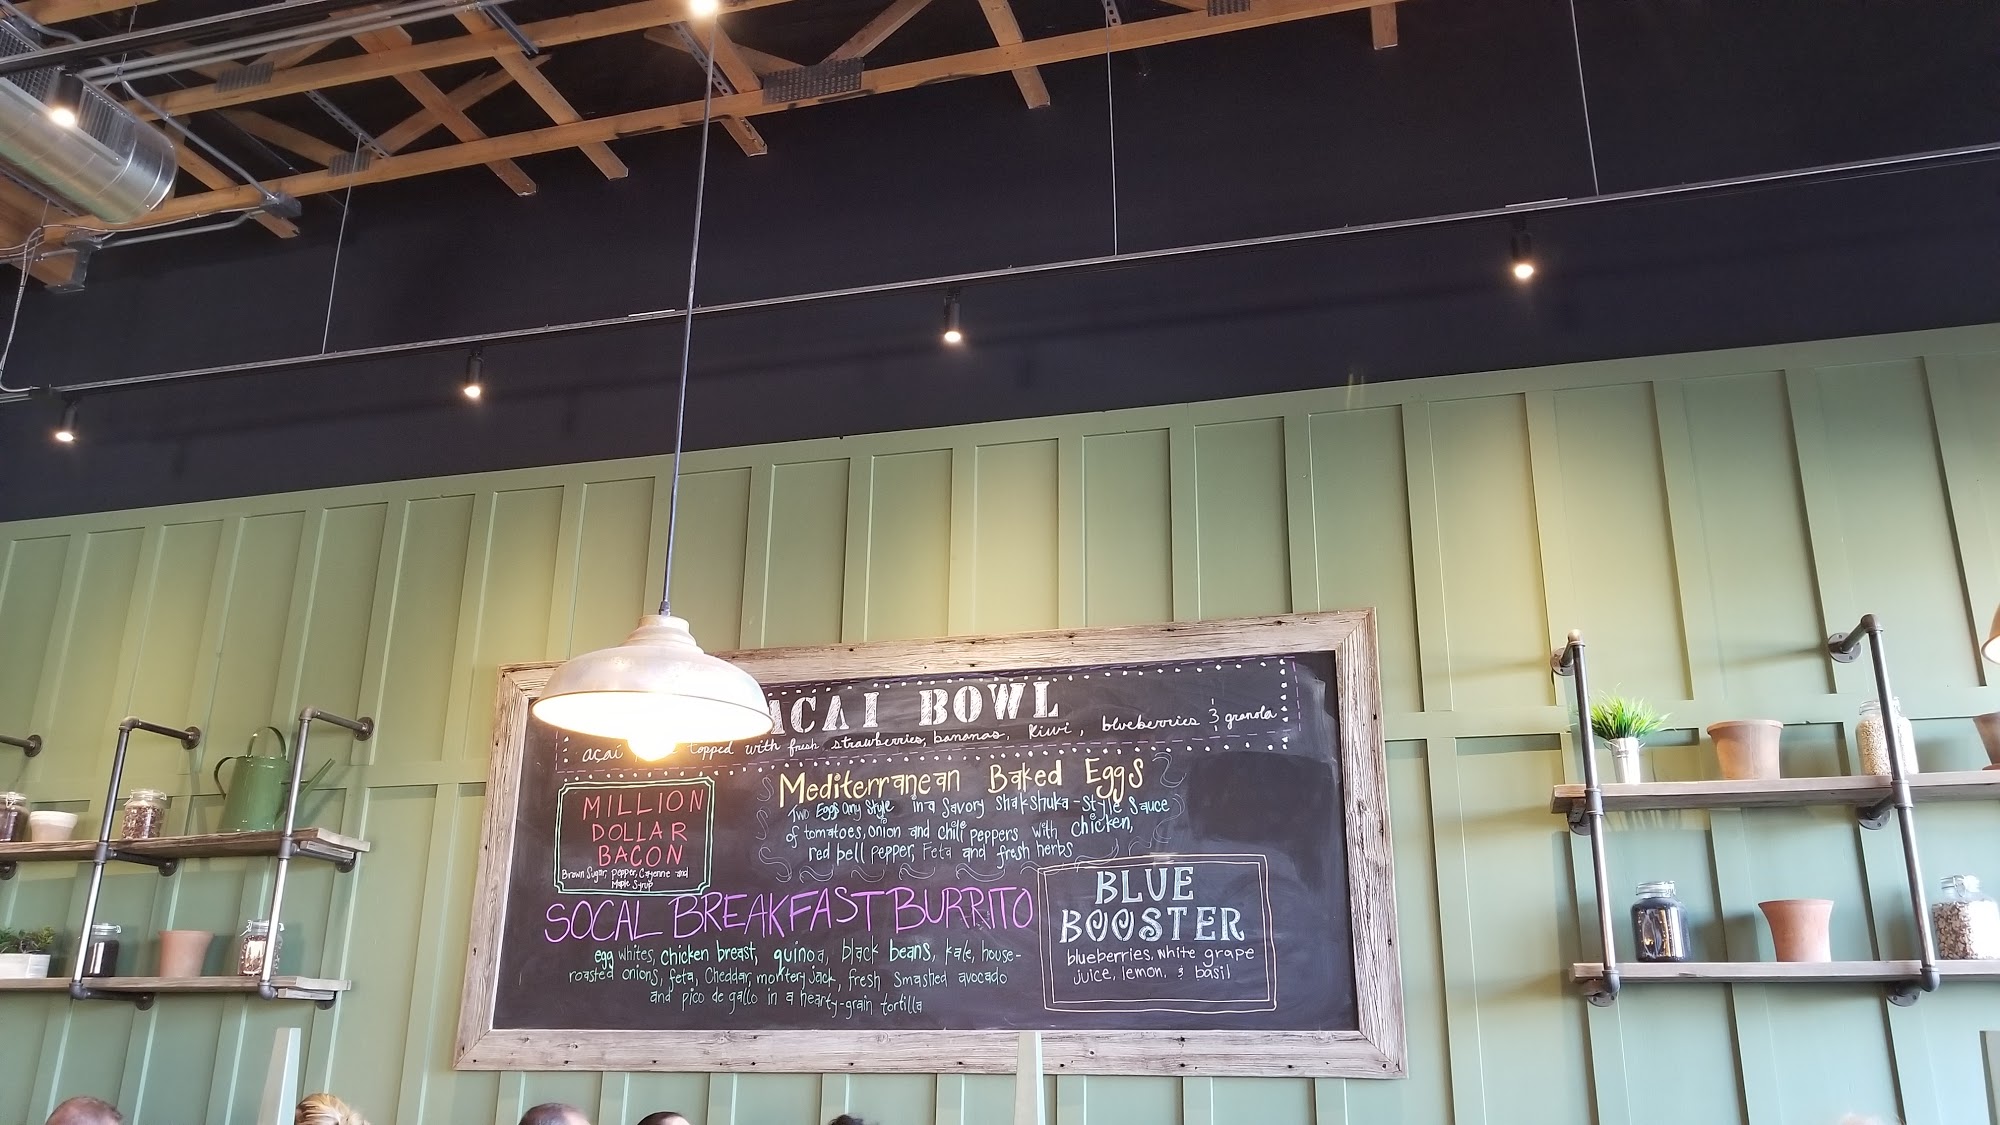 AÇAI BOWL
açaí topped with fresh strawberries, bananas, kiwi, blueberries & granola
MILLION
DOLLAR
BACON
Brown Sugar, pepper, Cayenne and
Maple Syrup
Mediterranean Baked Eggs
Two Eggs any Style in a Savory Shakshuka-Style Sauce
of tomatoes, onion and chili peppers with chicken,
red bell pepper, Feta and fresh herbs
SOCAL BREAKFAST BURRITO
egg whites, chicken breast, quinoa, black beans, kale, house-
roasted onions, feta, Cheddar, monterey jack, fresh smashed avocado
and pico de gallo in a hearty-grain tortilla
BLUE
BOOSTER
blueberries, white grape
juice, lemon, & basil